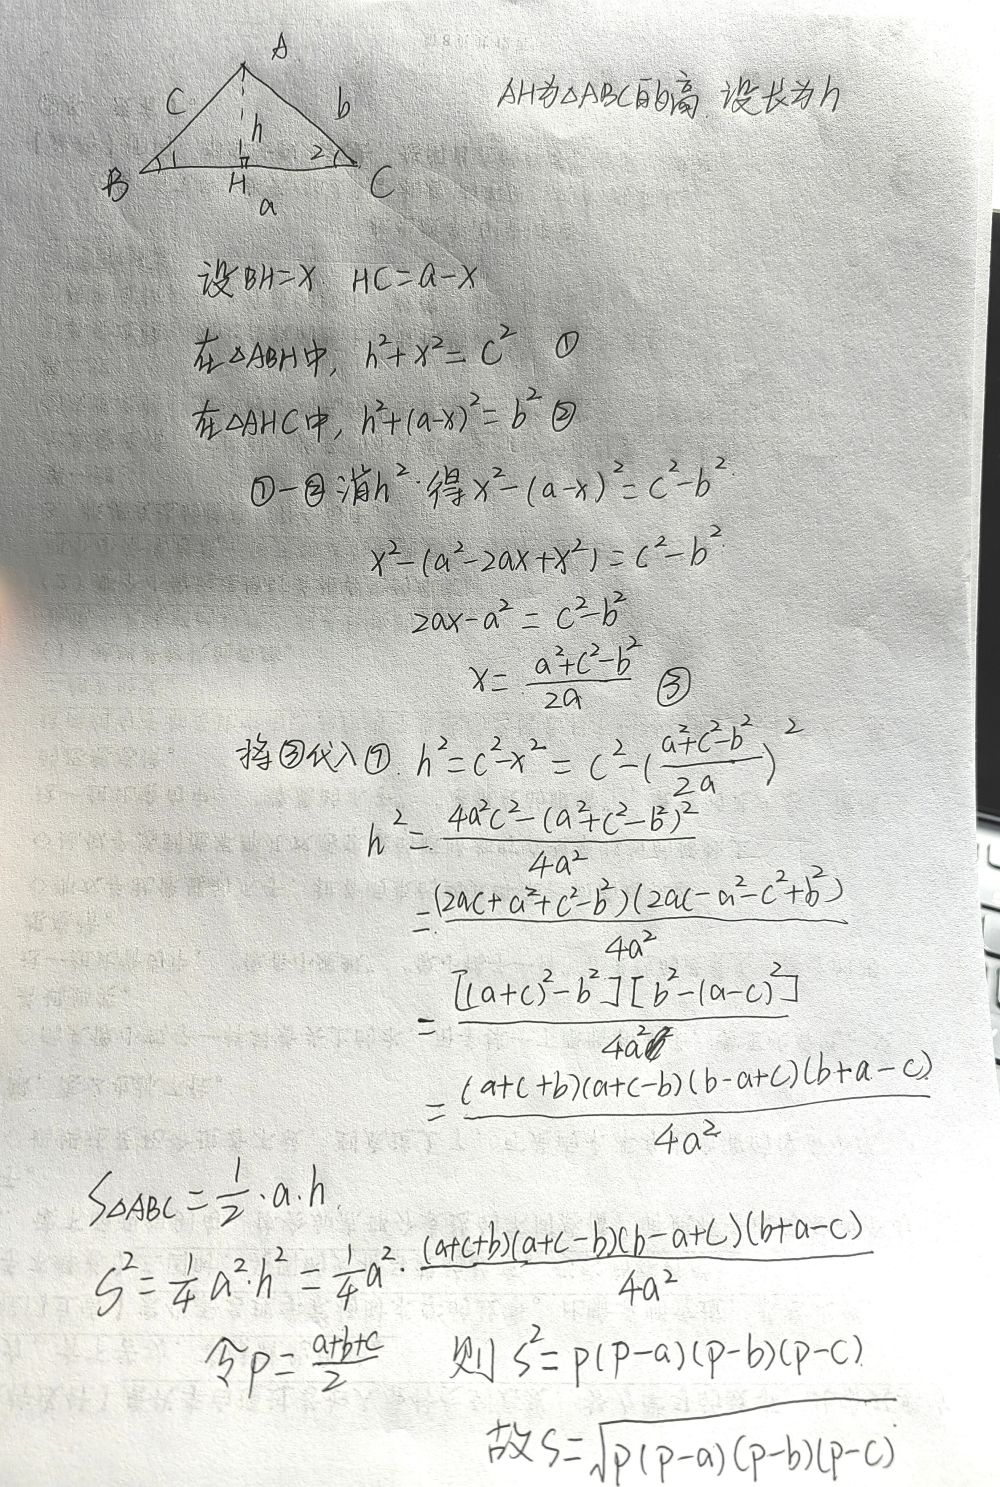 A
AH为△ABC的高 设长为h
c b
h
1 2
B H C
a
设BH=x HC=a-x
在△ABH中, h²+x²=c² ①
在△AHC中, h²+(a-x)²=b² ②
①-②消h²得x²-(a-x)²=c²-b²
x²-(a²-2ax+x²)=c²-b²
2ax-a²=c²-b²
x=(a²+c²-b²)/2a ③
将③代入①. h²=c²-x²=c²-((a²+c²-b²)/2a)²
h²=(4a²c²-(a²+c²-b²)²)/4a²
=(2ac+a²+c²-b²)(2ac-a²-c²+b²)/4a²
=[(a+c)²-b²][b²-(a-c)²]/4a²
=(a+c+b)(a+c-b)(b-a+c)(b+a-c)/4a²
S△ABC=1/2·a·h
S²=1/4a²·h²=1/4a²·(a+c+b)(a+c-b)(b-a+c)(b+a-c)/4a²
令p=(a+b+c)/2 则S²=p(p-a)(p-b)(p-c)
故S=√p(p-a)(p-b)(p-c)